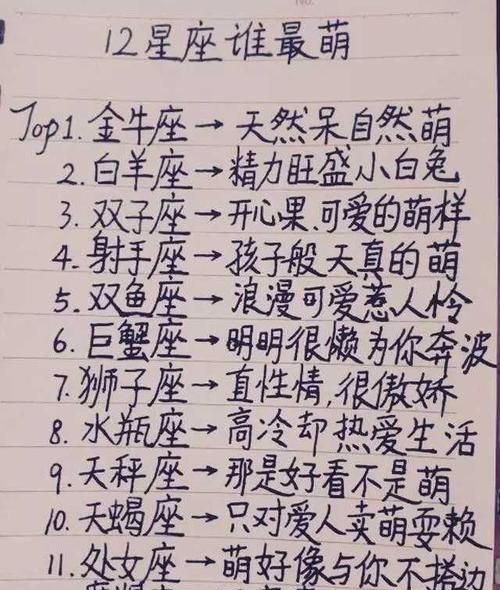 12星座谁最萌
Top1. 金牛座→天然呆自然萌
2. 白羊座→精力旺盛小白兔
3. 双子座→开心果,可爱的萌样
4. 射手座→孩子般天真的萌
5. 双鱼座→浪漫可爱惹人怜
6. 巨蟹座→明明很懒为你奔波
7. 狮子座→直性情,很傲娇
8. 水瓶座→高冷却热爱生活
9. 天秤座→那是好看不是萌
10. 天蝎座→只对爱人卖萌耍赖
11. 处女座→萌好像与你不搭边